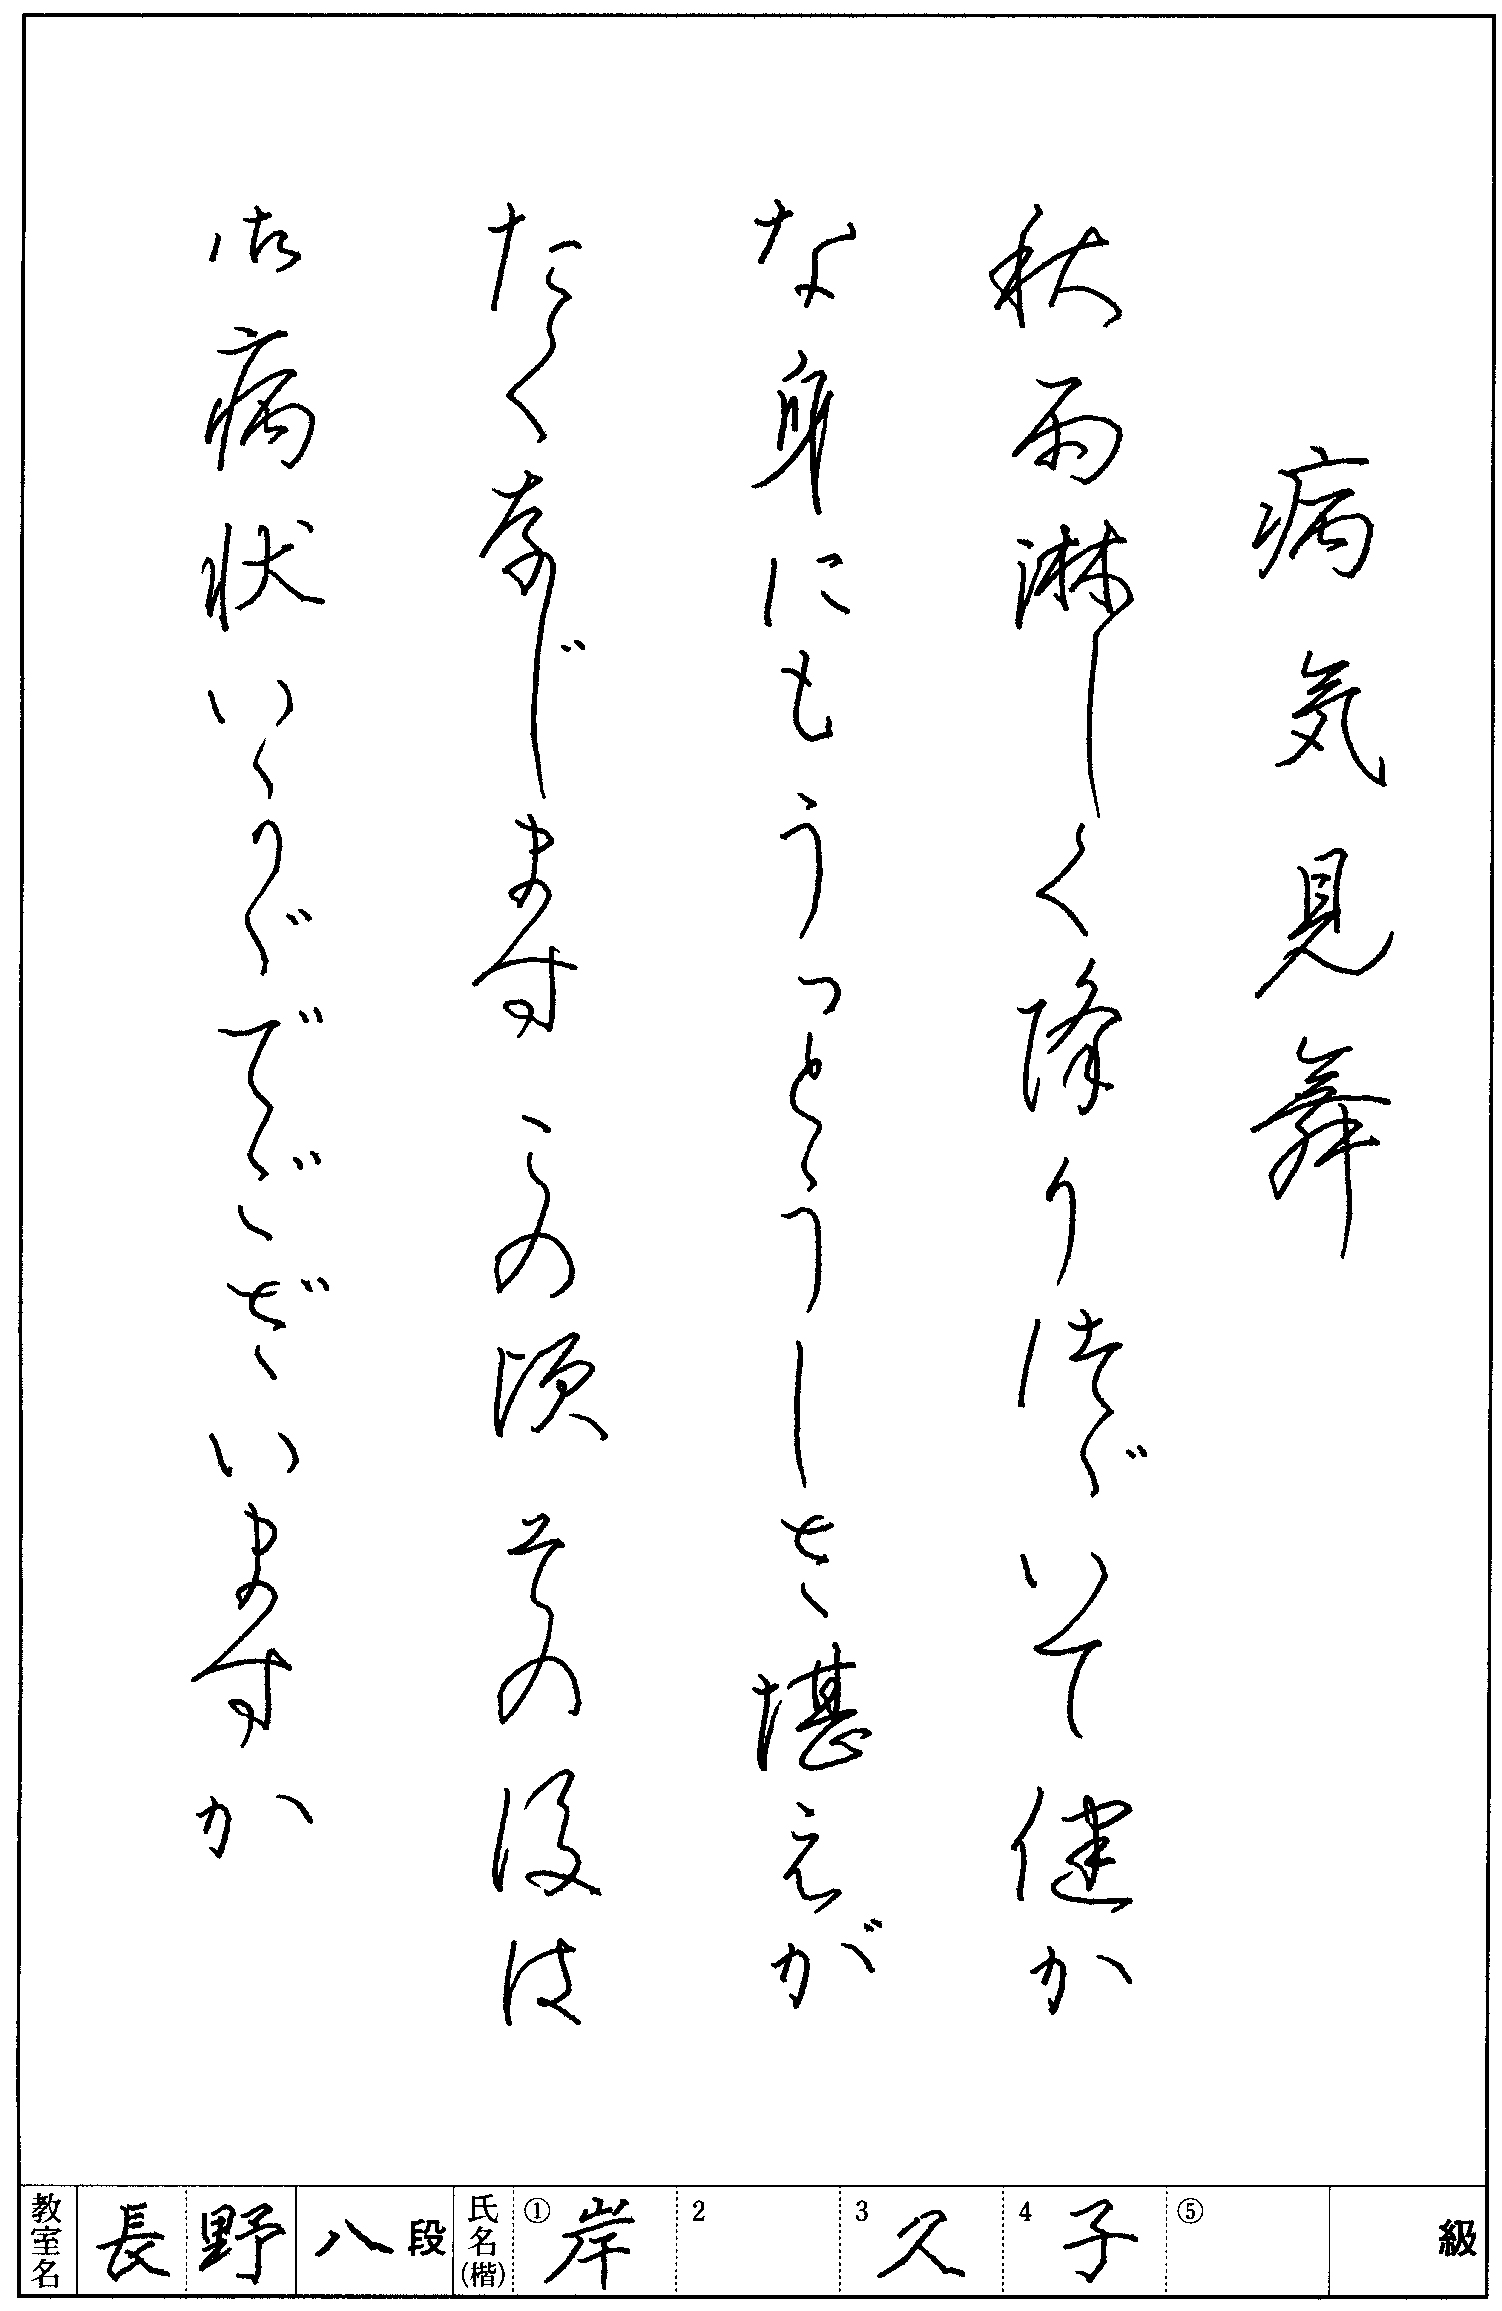 病気見舞
秋雨淋しく降りつゞいて健か
な身にもうっとうしさ堪えが
たく存じますこの頃その後は
御病状いかゞでございますか
教室名 長野 八段 氏名(楷) ① 岸 2 3 久 4 子 ⑤ 級